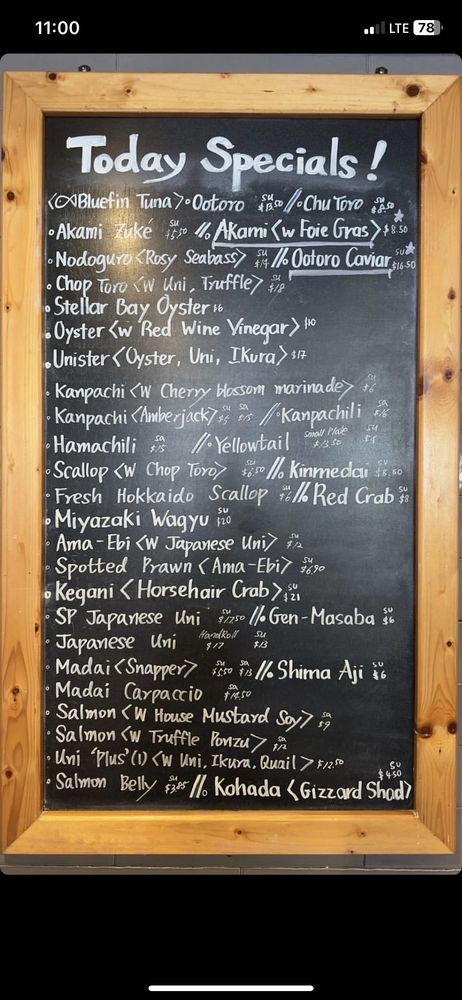 11:00 LTE 78
Today Specials!
<∞Bluefin Tuna> • Ootoro su $13.50 //• Chu Toro su $8.50
• Akami Zuké su $5.50 //• Akami <w Foie Gras> $8.50
• Nodoguro <Rosy Seabass> su $14 //• Ootoro Caviar su $16.50
• Chop Toro <w Uni, Truffle> su $18
• Stellar Bay Oyster $6
• Oyster <w Red Wine Vinegar> $10
• Unister <Oyster, Uni, Ikura> $17
• Kanpachi <w Cherry blossom marinade> su $6
• Kanpachi <Amberjack> su sa $15 //• Kanpachili sa $16
• Hamachili sa $15 //• Yellowtail Small Plate $13.50 su
• Scallop <w Chop Toro> su $6.50 //• Kinmedai su $8.50
• Fresh Hokkaido Scallop su $6 //• Red Crab su $8
• Miyazaki Wagyu su $20
• Ama-Ebi <w Japanese Uni> su $12
• Spotted Prawn <Ama-Ebi> su $6.90
• Kegani <Horsehair Crab> su $21
• SP Japanese Uni su $17.50 //• Gen-Masaba su $6
• Japanese Uni Handroll $17 su $13
• Madai <Snapper> su $5.50 sa $13 //• Shima Aji su $6
• Madai Carpaccio sa $14.50
• Salmon <w House Mustard Soy> sa $9
• Salmon <w Truffle Ponzu> sa $12
• Uni 'Plus' (1) <w Uni, Ikura, Quail> $12.50
• Salmon Belly su $3.85 //• Kohada <Gizzard Shad> su $4.50